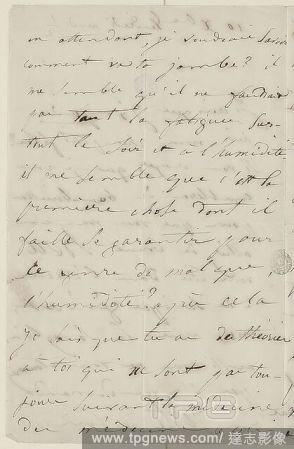 en attendant, je voudrais savoir
comment va ta jambe? il
me semble qu'il ne faudrait
pas tant la fatiguer sur-
tout le soir et à l'humidité
il me semble que c'est la
première chose dont il
faille se garantir pour
ce genre de mal que
l'humidité? après cela
je sais que tu as des théories
à toi qui ne sont pas tou-
jours suivant la médecine
des médecins
www.tpgnews.com/ 達志影像